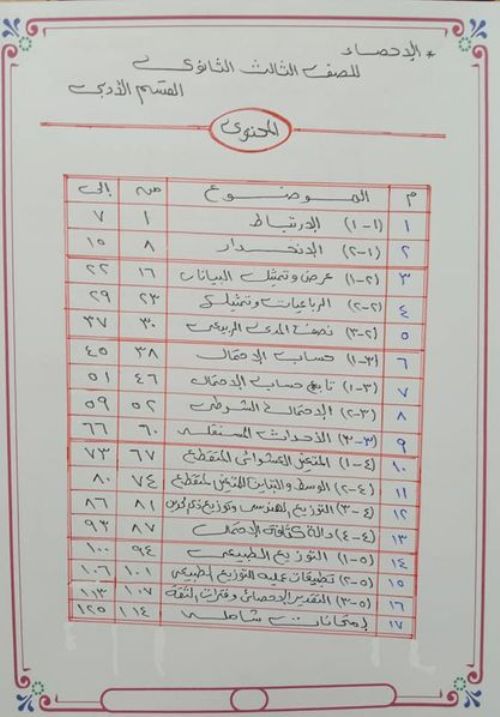 * الإحصاء
للصف الثالث الثانوى
القسم الأدبى
المحتوى
م الموضوع من إلى
١ (١-١) الإرتباط ١ ٧
٢ (٢-١) الإنحدار ٨ ١٥
٣ (١-٢) عرض وتمثيل البيانات ١٦ ٢٢
٤ (٢-٢) الرباعيات وتمثيل ٢٣ ٢٩
٥ (٣-٢) نصف المدى الربيعى ٣٠ ٣٧
٦ (١-٣) حساب الإحتمال ٣٨ ٤٥
٧ (١-٣) تابع حساب الإحتمال ٤٦ ٥١
٨ (٢-٣) الإحتمال الشرطى ٥٢ ٥٩
٩ (٣-٣) الأحداث المستقلة ٦٠ ٦٦
١٠ (١-٤) المتغير العشوائى المتقطع ٦٧ ٧٣
١١ (٢-٤) الوسط والتباين للمتغير المتقطع ٧٤ ٨٠
١٢ (٣-٤) التوزيع الهندسى وتوزيع ذى الحدين ٨١ ٨٦
١٣ (٤-٤) دالة كثافة الإحتمال ٨٧ ٩٣
١٤ (١-٥) التوزيع الطبيعى ٩٤ ١٠٠
١٥ (٢-٥) تطبيقات عليه التوزيع الطبيعى ١٠١ ١٠٦
١٦ (٣-٥) التقدير الإحصائى وفترات الثقة ١٠٧ ١١٣
١٧ إمتحانات شاملة ١١٤ ١٢٥